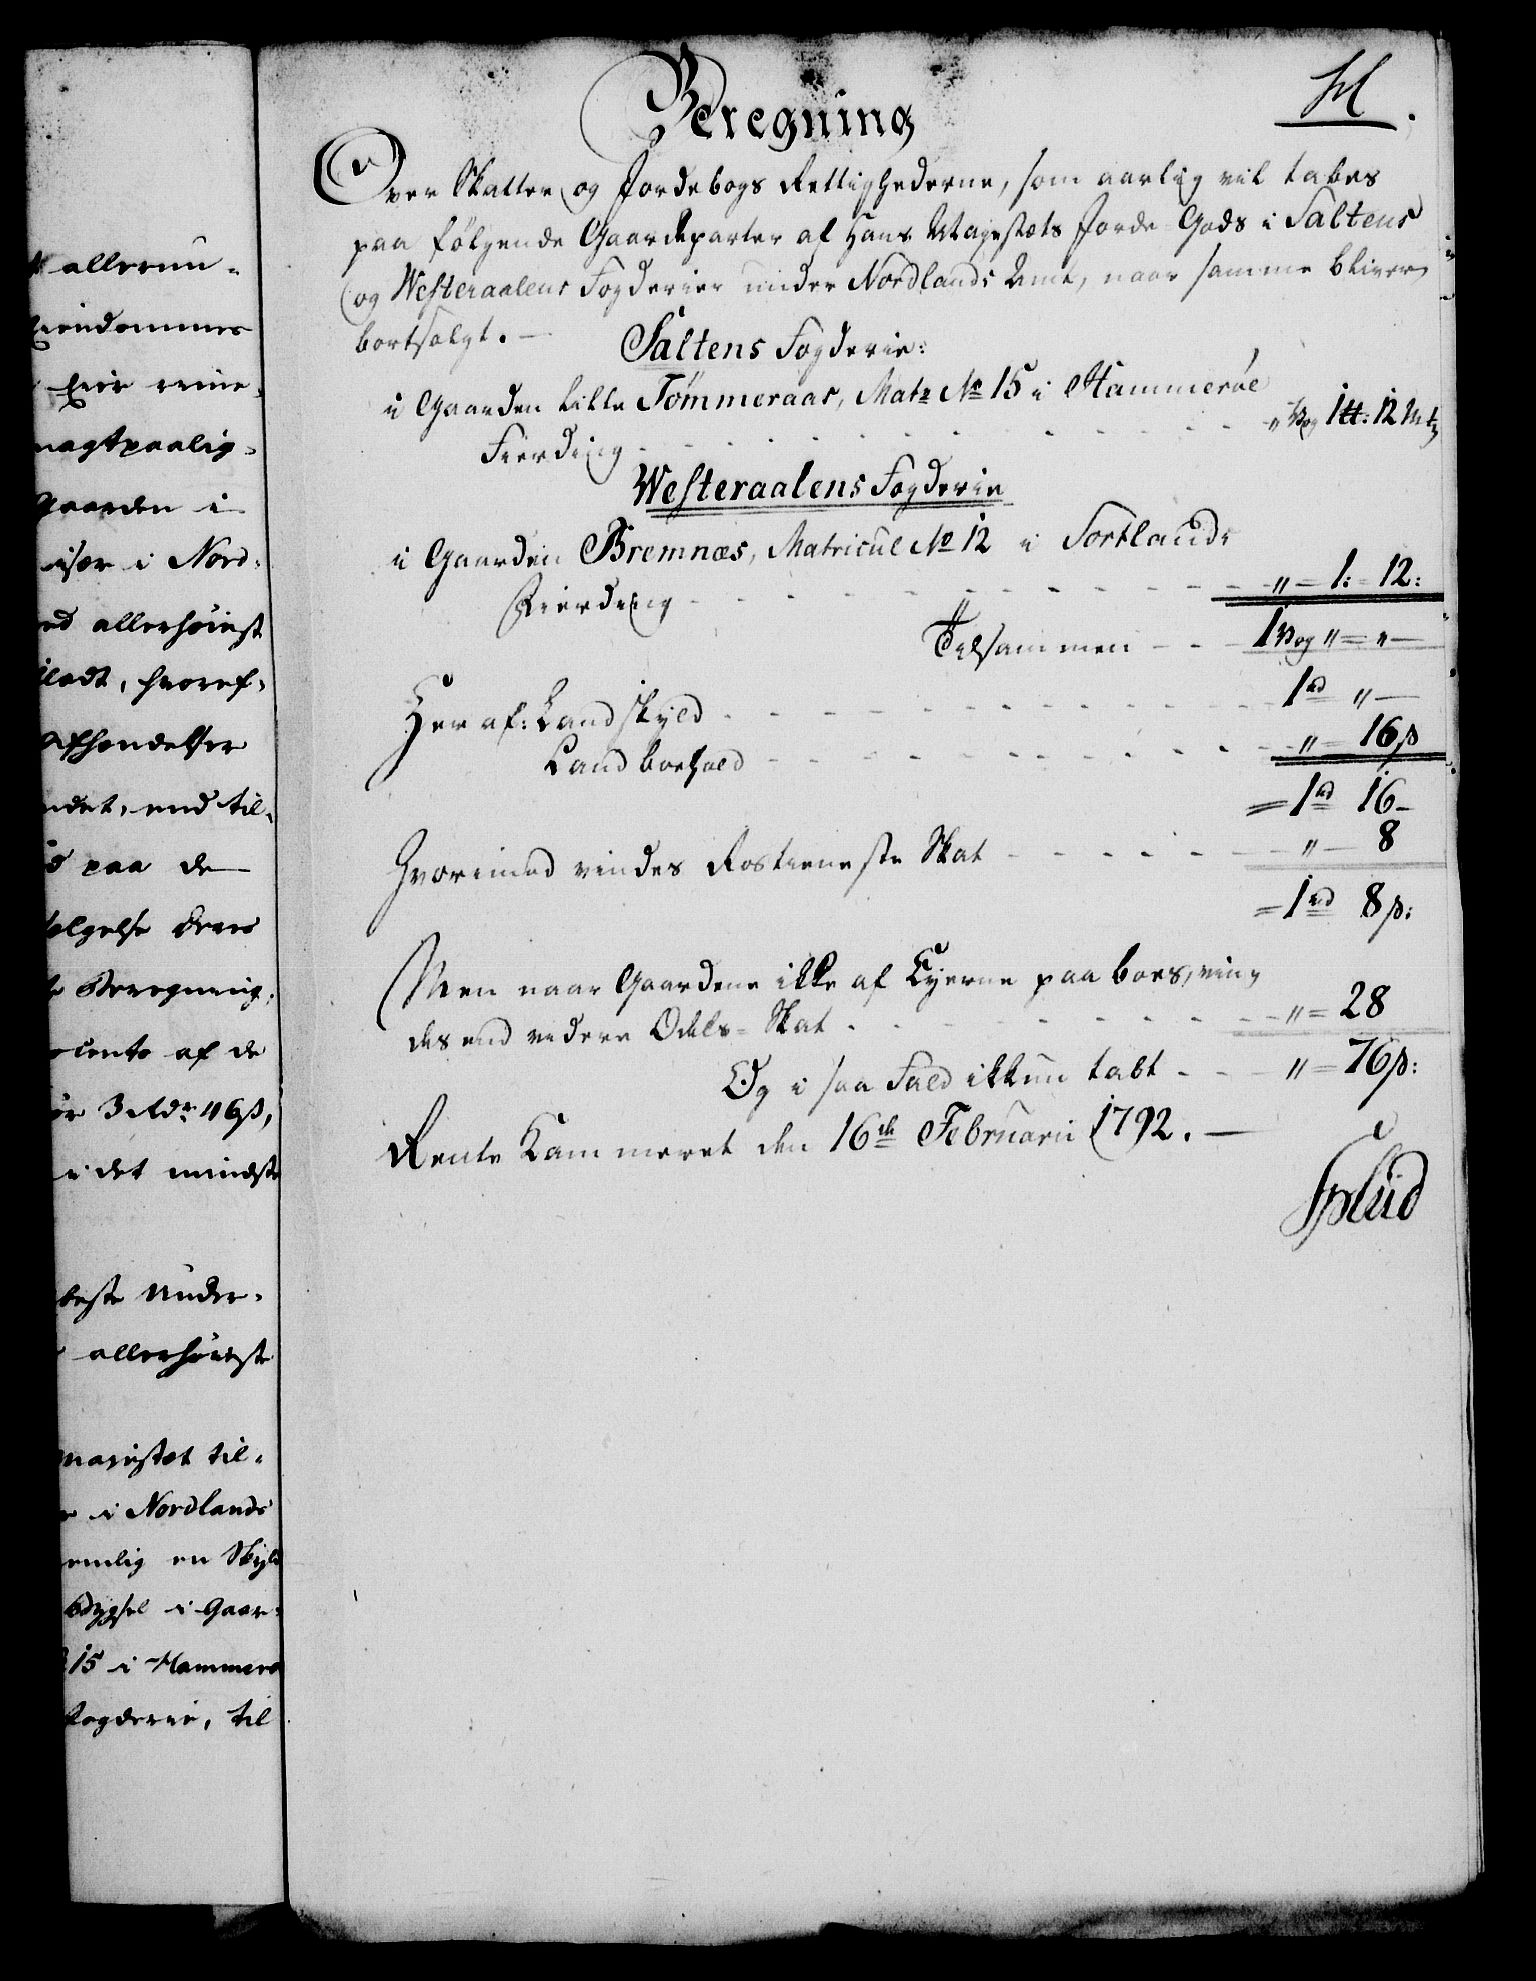 Beregning
Over Skatter og Jordebogs Rettighederne, som aarlig vil tabes
paa følgende Gaardeparter af Hans Mayestæts Jorde-Gods i Saltens
og Westeraalens Fogderier under Nordlands Amt, naar samme bliver
bortsolgt. —
Saltens Fogderie:
i Gaarden Lille Tømmeraas, Matr No 15 i Hammerøe
Fierding - - - - - - - - - " Vog 1 ℔: 12 Mk
Westeraalens Fogderie
i Gaarden Bremnæs, Matricul No 12 i Sortlands
Fierding - - - - - - - - - " = 1: = 12:
Tilsammen - - - 1 Vog " = " —
Her af: Landskyld - - - - - - - - - 1 rd " —
Landboehold - - - - - - - - - " = 16 ß
= 1 rd 16 —
Hvorimod vindes Rostieneste Skat - - - - - " — 8
= 1 rd 8 ß:
Men naar Gaardene ikke af Eyerne paaboes, vin,
des end videre Odels-Skat - - - - - - - - - " = 28
Og i saa Fald ikkun tabt - - - " = 76 ß:
Rente Kammeret den 16de Februarii 1792. —
allerun-
Eiendommes
magtpaalig-
Gaarden i
især i Nord-
allerhøiest
hvoref-
Afhændelser
end til-
paa de
Beregning,
af de
3 Rdr 46 ß,
i det mindste
Under-
allerhøieste
til-
i Nordlands
en Skyld
Bøgsel i Gaar-
15 i Hammerø
Fogderie, til